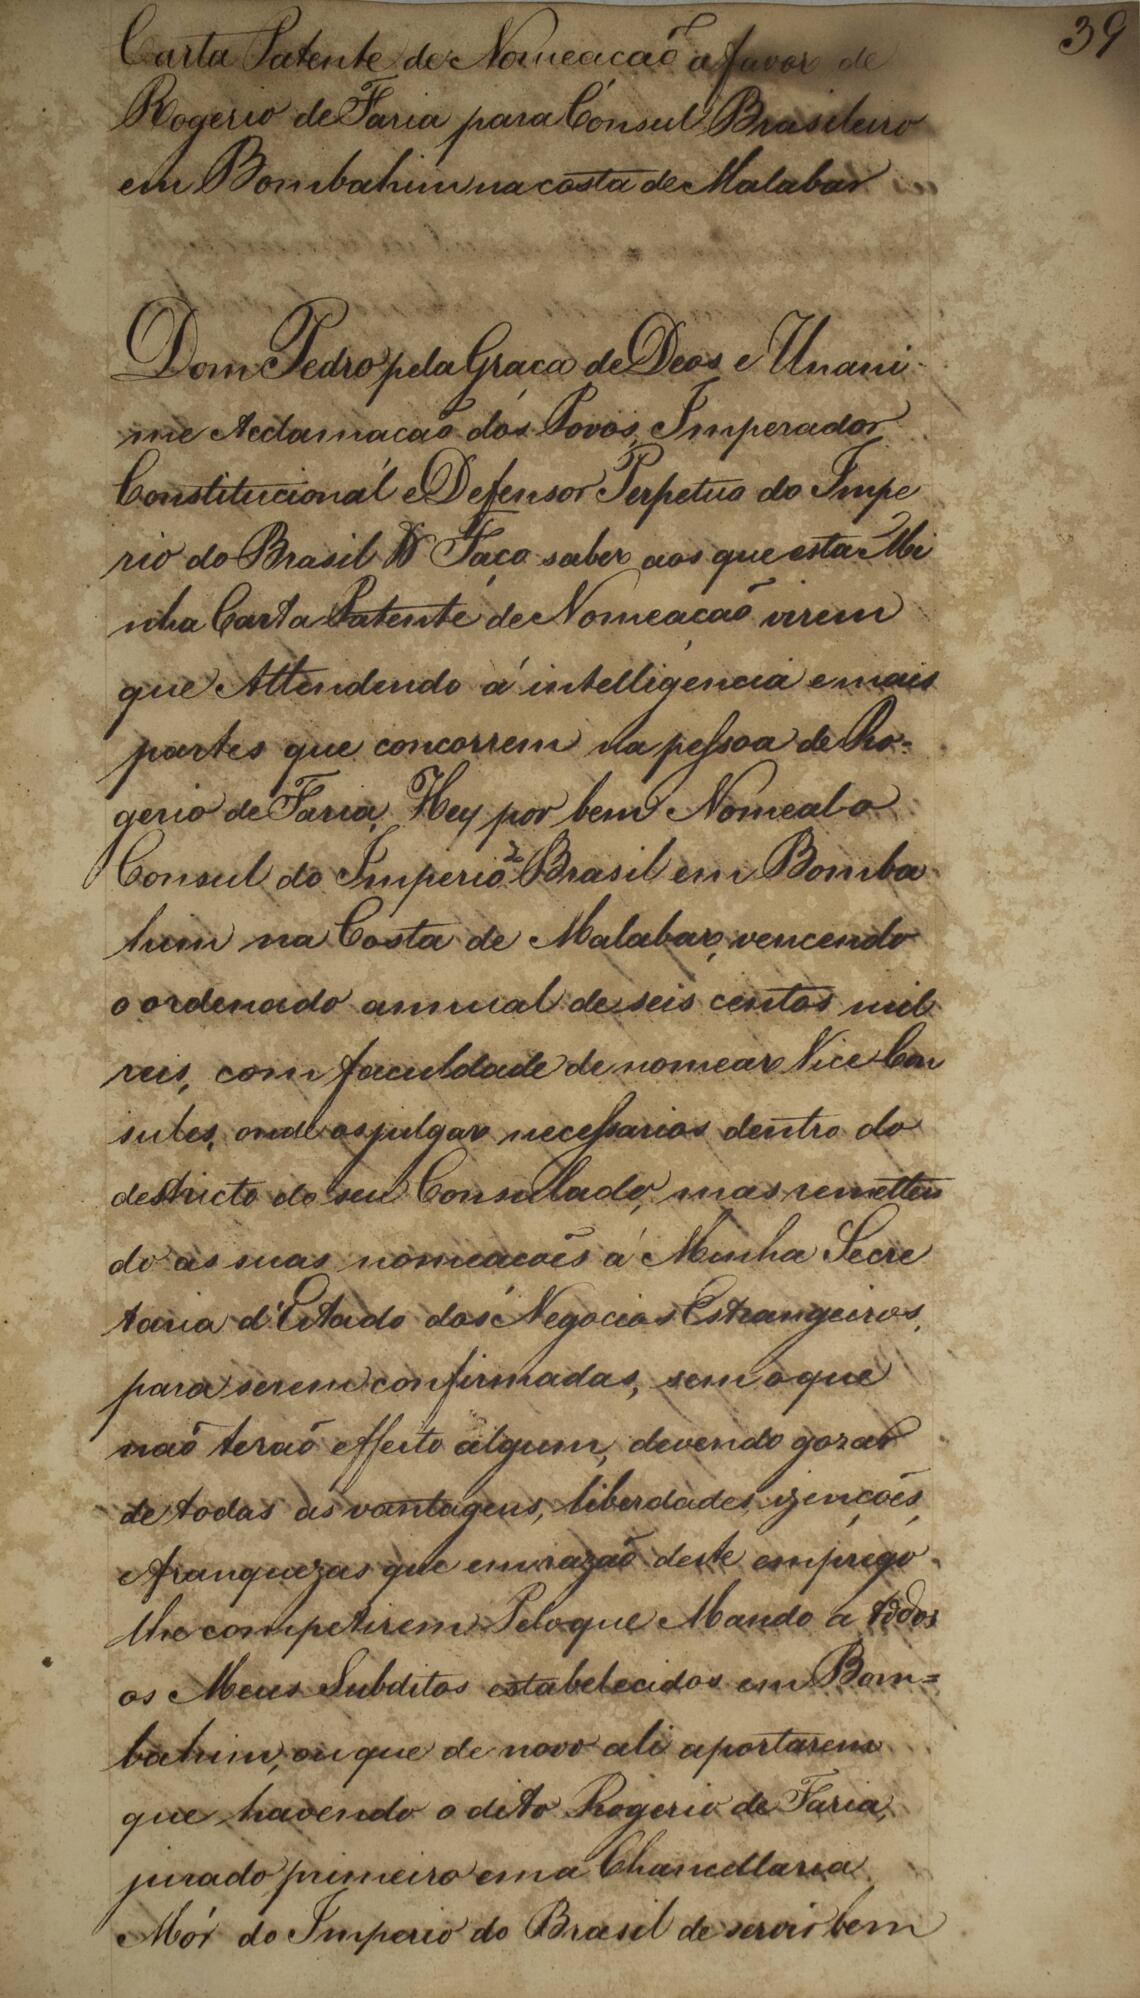 39
Carta Patente de Nomeacaõ a favor de
Rogerio de Faria para Consul Brasileiro
em Bombahim na costa de Malabar
Dom Pedro pela Graça de Deos e Unani-
me Acclamacaõ dos Povos, Imperador
Constitucional e Defensor Perpetuo do Impe
rio do Brasil Faço saber aos que esta Mi
nha Carta Patente de Nomeaçaõ virem
que Attendendo á intelligencia e mais
partes que concorrem na pessoa de Ro-
gerio de Faria, Hey por bem Nomealo
Consul do Imperio Brasil em Bomba
him na Costa de Malabar, vencendo
o ordenado annual de seis centos mil
reis, com faculdade de nomear Vice Con
sules, onde os julgar necessarios dentro do
destricto do seu Consulado, mas remetten
do as suas nomeacoẽs á Minha Secre
taria d'Estado dos Negocios Estrangeiros,
para serem confirmadas, sem o que
naõ teraõ effeito algum, devendo gozar
de todas as vantagens, liberdades, izençoẽs,
e franquezas que em razaõ deste emprego
lhe competirem Pelo que Mando a todos
os Meus Subditos estabelecidos em Bom=
bahim, ou que de novo ali aportarem
que havendo o dito Rogerio de Faria,
jurado primeiro em a Chancellaria
Mór do Imperio do Brasil de servir bem